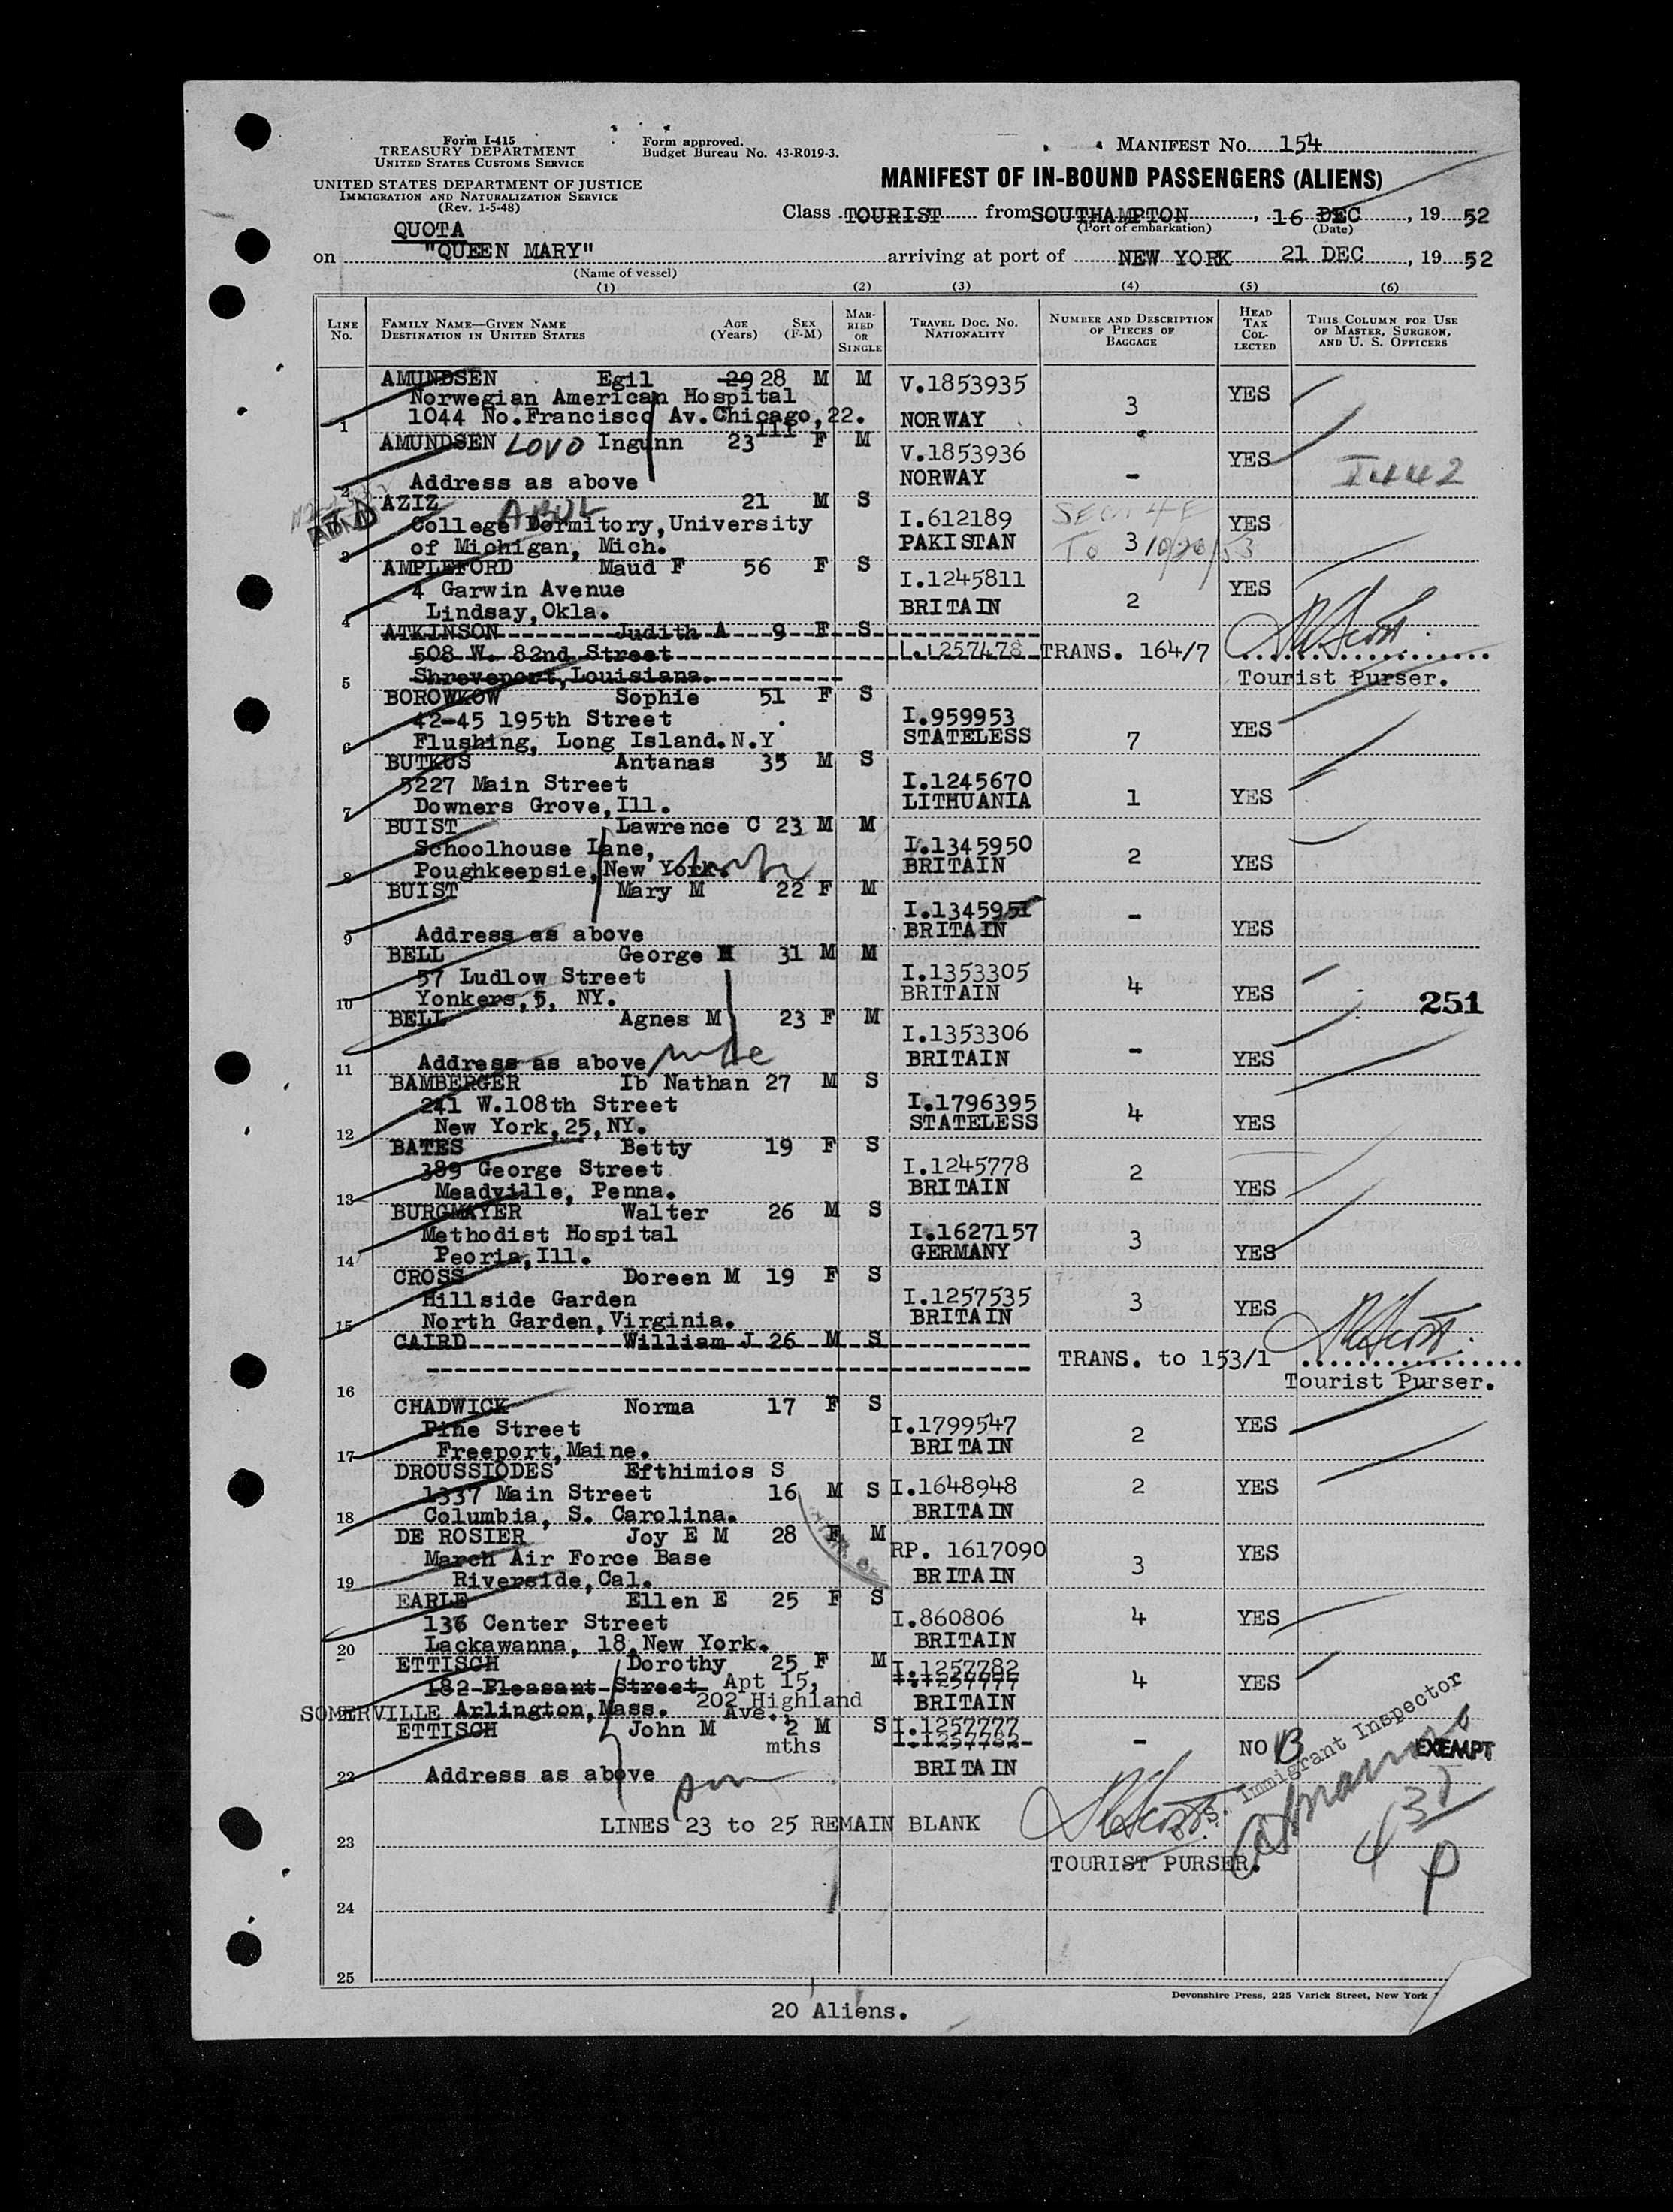 Form I-415
TREASURY DEPARTMENT
UNITED STATES CUSTOMS SERVICE
Form approved.
Budget Bureau No. 43-R019-3.
MANIFEST No. 154
UNITED STATES DEPARTMENT OF JUSTICE
IMMIGRATION AND NATURALIZATION SERVICE
(Rev. 1-5-48)
MANIFEST OF IN-BOUND PASSENGERS (ALIENS)
Class TOURIST from SOUTHAMPTON, 16 DEC, 19 52
(Port of embarkation) (Date)
QUOTA
on "QUEEN MARY" arriving at port of NEW YORK 21 DEC, 19 52
(Name of vessel)
(1) (2) (3) (4) (5) (6)
LINE No. FAMILY NAME—GIVEN NAME DESTINATION IN UNITED STATES AGE (Years) SEX (F-M) MARRIED OR SINGLE TRAVEL DOC. NO. NATIONALITY NUMBER AND DESCRIPTION OF PIECES OF BAGGAGE HEAD TAX COLLECTED THIS COLUMN FOR USE OF MASTER, SURGEON, AND U. S. OFFICERS
AMUNDSEN Egil 29 28 M M V.1853935
Norwegian American Hospital 3 YES
1 1044 No.Francisco Av.Chicago,22. NORWAY
Ill
AMUNDSEN LOVO Ingunn 23 F M V.1853936 YES
2 Address as above NORWAY - I442
AZIZ ABUL 21 M S
College Dormitory,University I.612189 SEC. 4E YES
3 of Michigan, Mich. PAKISTAN 3 To 10/20/53
AMPLEFORD Maud F 56 F S I.1245811
4 Garwin Avenue YES
4 Lindsay,Okla. BRITAIN 2
ATKINSON Judith A 9 F S
508 W. 82nd Street I.1257478 TRANS. 164/7
5 Shreveport,Louisiana. Tourist Purser.
BOROWKOW Sophie 51 F S
42-45 195th Street I.959953 YES
6 Flushing, Long Island.N.Y STATELESS 7
BUTKUS Antanas 35 M S
5227 Main Street I.1245670
7 Downers Grove,Ill. LITHUANIA 1 YES
BUIST Lawrence C 23 M M
Schoolhouse Lane, I.1345950 2
8 Poughkeepsie,New York. BRITAIN YES
BUIST Mary M 22 F M
I.1345951 -
9 Address as above BRITAIN YES
BELL George H 31 M M
57 Ludlow Street I.1353305 4
10 Yonkers,5, NY. BRITAIN YES
251
BELL Agnes M 23 F M
I.1353306 -
11 Address as above BRITAIN YES
BAMBERGER Ib Nathan 27 M S
241 W.108th Street I.1796395 4
12 New York,25,NY. STATELESS YES
BATES Betty 19 F S
389 George Street I.1245778 2
13 Meadville, Penna. BRITAIN YES
BURGMAYER Walter 26 M S
Methodist Hospital I.1627157 3
14 Peoria,Ill. GERMANY YES
CROSS Doreen M 19 F S
Hillside Garden I.1257535 3
15 North Garden,Virginia. BRITAIN YES
CAIRD William J 26 M S
TRANS. to 153/1
16 Tourist Purser.
CHADWICK Norma 17 F S
Pine Street I.1799547 2 YES
17 Freeport,Maine. BRITAIN
DROUSSIODES Efthimios S
1337 Main Street 16 M S I.1648948 2 YES
18 Columbia, S. Carolina. BRITAIN
DE ROSIER Joy E M 28 F M
March Air Force Base RP. 1617090 YES
19 Riverside,Cal. BRITAIN 3
EARLE Ellen E 25 F S
136 Center Street I.860806 4 YES
20 Lackawanna, 18,New York. BRITAIN
ETTISCH Dorothy 25 F M I.1257782
182 Pleasant Street Apt 15, I.1257777 4 YES
SOMERVILLE Arlington,Mass. 202 Highland Ave., BRITAIN
ETTISCH John M 2 M S I.1257777
mths I.1257782 - NO EXEMPT
22 Address as above BRITAIN
U.S. Immigrant Inspector
LINES 23 to 25 REMAIN BLANK
23
TOURIST PURSER.
24
25
Devonshire Press, 225 Varick Street, New York
20 Aliens.